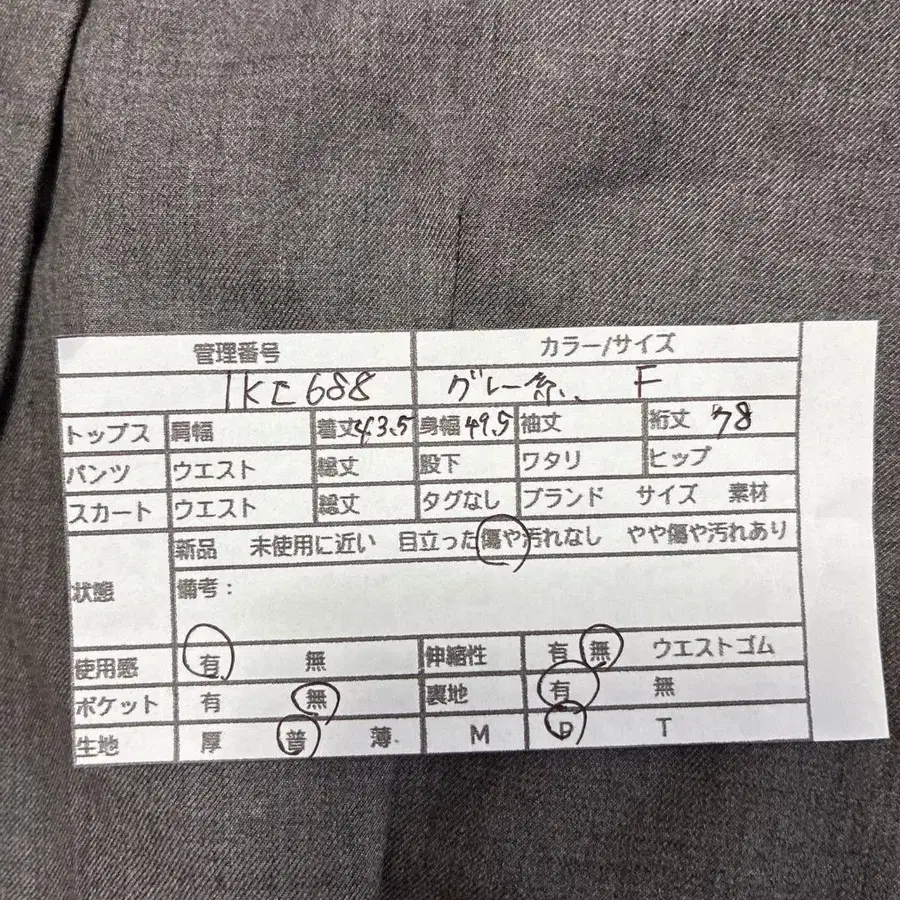 管理番号 カラー/サイズ
IKE688 グレー系、 F
トップス 肩幅 着丈43.5 身幅49.5 袖丈 裄丈 78
パンツ ウエスト 総丈 股下 ワタリ ヒップ
スカート ウエスト 総丈 タグなし ブランド サイズ 素材
状態 新品 未使用に近い 目立った傷や汚れなし やや傷や汚れあり
備考：
使用感 有 無 伸縮性 有 無 ウエストゴム
ポケット 有 無 裏地 有 無
生地 厚 普 薄 M P T